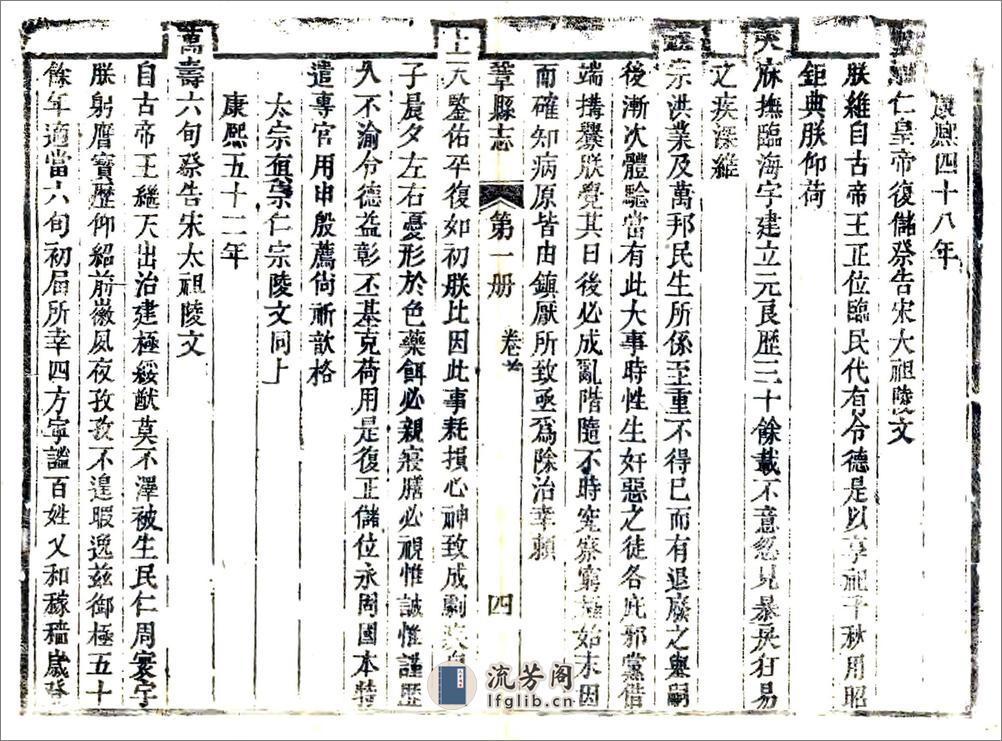 康熙四十八年
聖祖仁皇帝復儲祭告宋太祖陵文
朕維自古帝王正位臨民代有令德是以享祀千秋用昭
鉅典朕仰荷
天庥撫臨海宇建立元良歷三十餘載不意忽見暴戾狂易
之疾深維
祖宗洪業及萬邦民生所係至重不得已而有退廢之舉嗣
後漸次體驗當有此大事時性生奸惡之徒各庇邪黨借
端搆釁朕覺其日後必成亂階隨不時究察窮極始末因
而確知病原皆由鎮厭所致亟爲除治幸賴
鞏縣志
第一册
卷首
四
上天鑒佑平復如初朕比因此事耗損心神致成劇疾
子晨夕左右憂形於色藥餌必親寢膳必視惟誠惟謹歷
久不渝令德益彰丕基克荷用是復正儲位永固國本特
遣專官用申殷薦尚祈歆格
太宗眞宗仁宗陵文同上
康熙五十二年
萬壽六旬祭告宋太祖陵文
自古帝王繼天出治建極綏猷莫不澤被生民仁周寰宇
朕躬膺寶歷仰紹前徽夙夜孜孜不遑暇逸茲御極五十
餘年適當六旬初屆所幸四方寧謐百姓乂和稼穡歲登
流芳阁
lfglib.cn